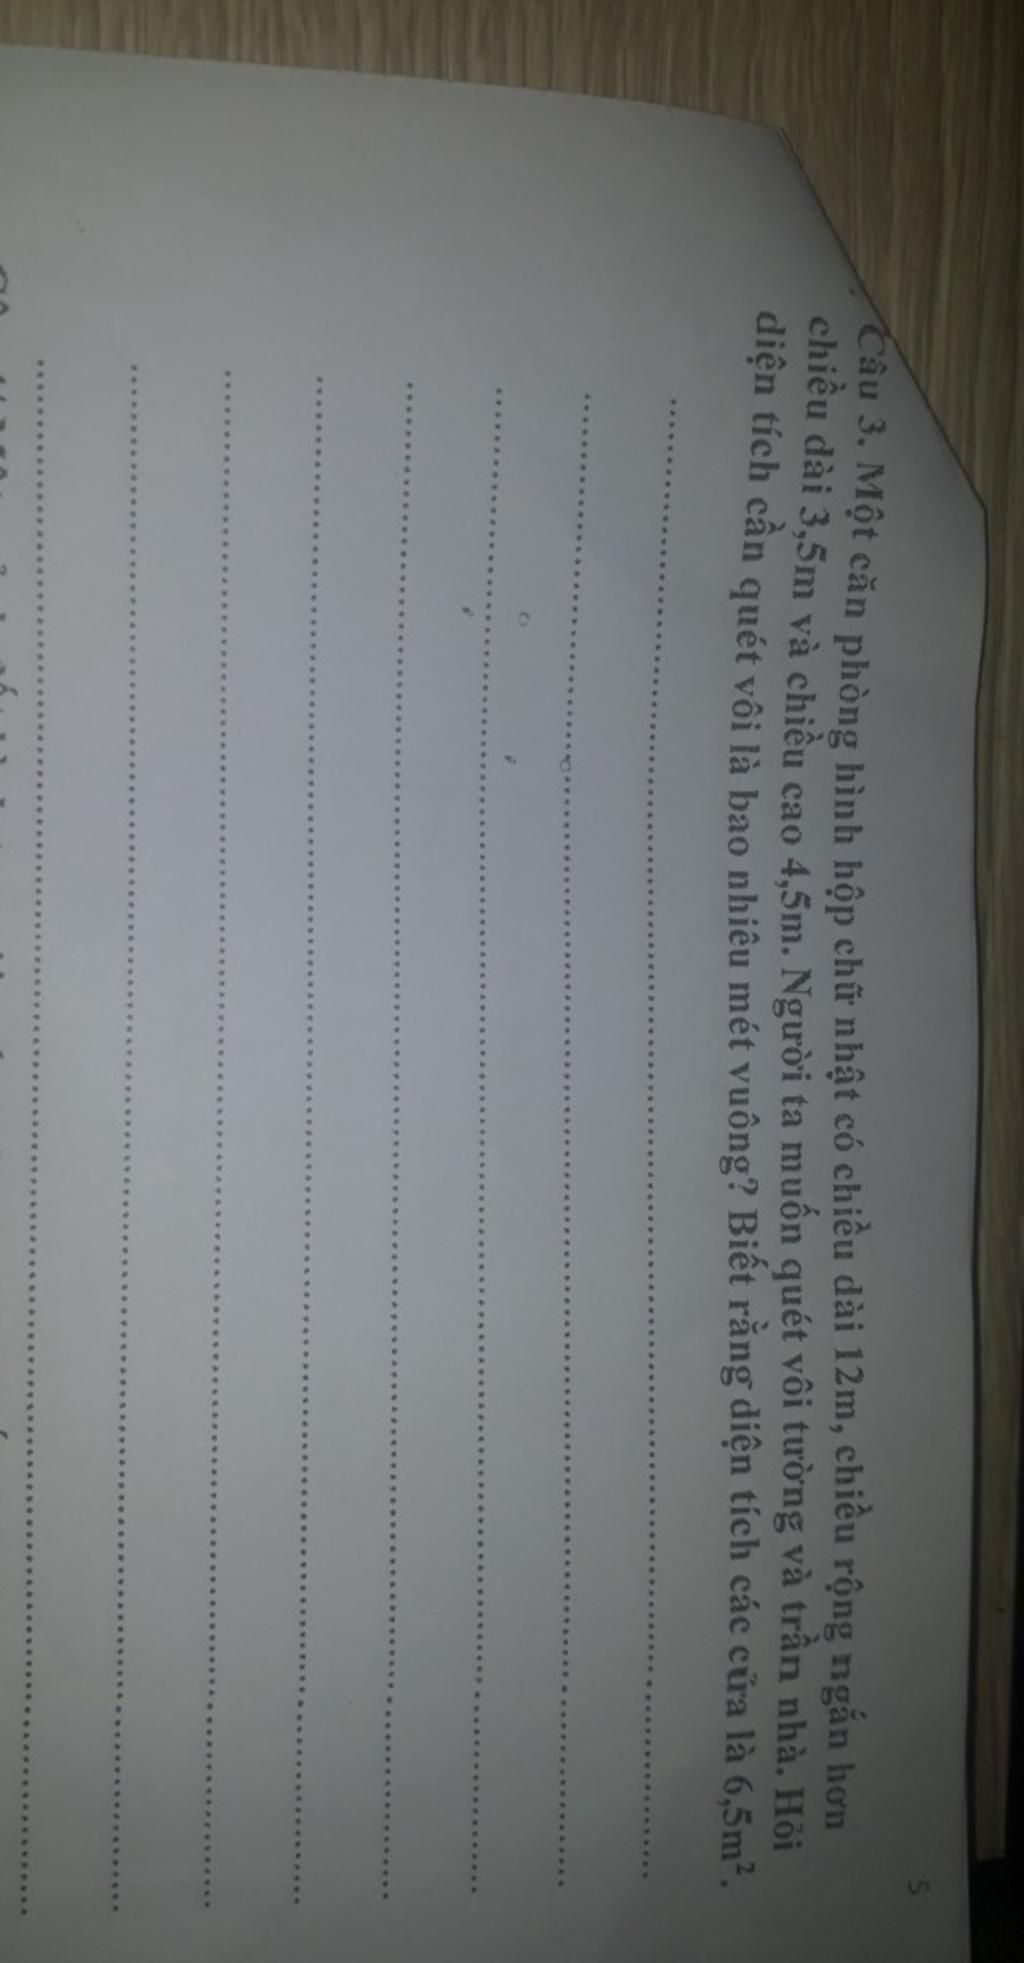 5
Câu 3. Một căn phòng hình hộp chữ nhật có chiều dài 12m, chiều rộng ngắn hơn
chiều dài 3,5m và chiều cao 4,5m. Người ta muốn quét vôi tường và trần nhà. Hỏi
diện tích cần quét vôi là bao nhiêu mét vuông? Biết rằng diện tích các cửa là 6,5m².